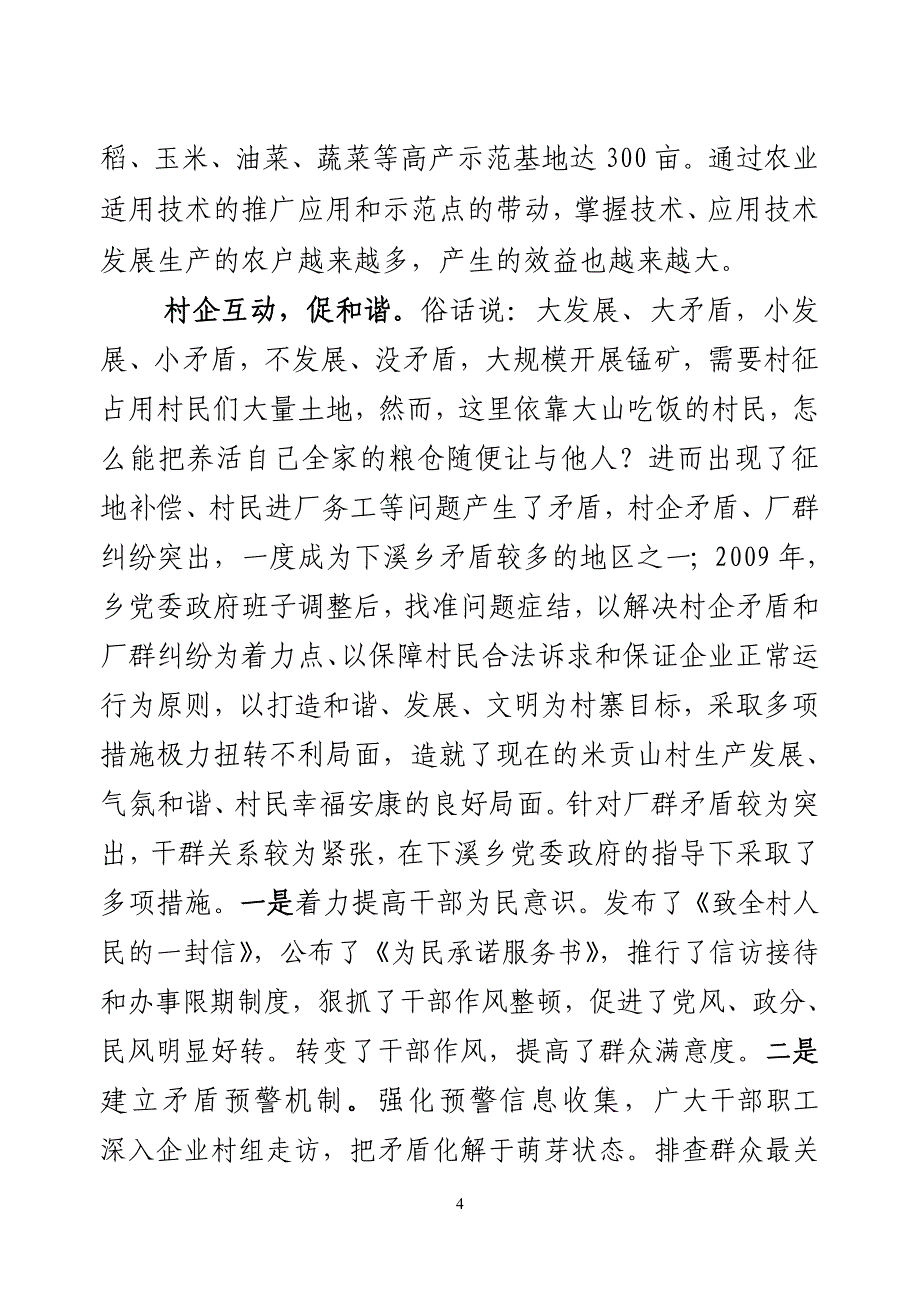 稻、玉米、油菜、蔬菜等高产示范基地达 300 亩。通过农业
适用技术的推广应用和示范点的带动，掌握技术、应用技术
发展生产的农户越来越多，产生的效益也越来越大。
村企互动，促和谐。俗话说：大发展、大矛盾，小发
展、小矛盾，不发展、没矛盾，大规模开展锰矿，需要村征
占用村民们大量土地，然而，这里依靠大山吃饭的村民，怎
么能把养活自己全家的粮仓随便让与他人？进而出现了征
地补偿、村民进厂务工等问题产生了矛盾，村企矛盾、厂群
纠纷突出，一度成为下溪乡矛盾较多的地区之一；2009 年，
乡党委政府班子调整后，找准问题症结，以解决村企矛盾和
厂群纠纷为着力点、以保障村民合法诉求和保证企业正常运
行为原则，以打造和谐、发展、文明为村寨目标，采取多项
措施极力扭转不利局面，造就了现在的米贡山村生产发展、
气氛和谐、村民幸福安康的良好局面。针对厂群矛盾较为突
出，干群关系较为紧张，在下溪乡党委政府的指导下采取了
多项措施。一是着力提高干部为民意识。发布了《致全村人
民的一封信》，公布了《为民承诺服务书》，推行了信访接待
和办事限期制度，狠抓了干部作风整顿，促进了党风、政分、
民风明显好转。转变了干部作风，提高了群众满意度。二是
建立矛盾预警机制。强化预警信息收集，广大干部职工
深入企业村组走访，把矛盾化解于萌芽状态。排查群众最关
4